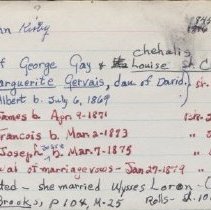 nn Kirby
chehalis
f George Gay & Louise
arguerite Gervais, dau of David)
lbert b. July 6, 1869
James b. Apr 9-1871
Francois b. Mar 2-1873
Joseph b. Mar 7-1875
wal of marriage vows - Jan 27-1879
ted - she married Ulysses Loron -
Brooks, p 104, M-25 Rolls-